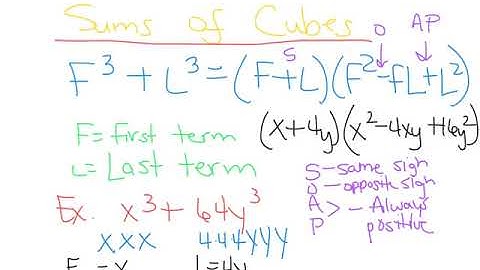 Sums of Cubes
O AP
S
F³ + L³ = (F+L)(F²-fL+L²)
F = first term
L = Last term
(x+4y)(x²-4xy+16y²)
S - same sign
O - opposite sign
A > - Always
P positive
Ex. x³ + 64y³
x·x·x 4·4·4·y·y·y
F = x L = 4y